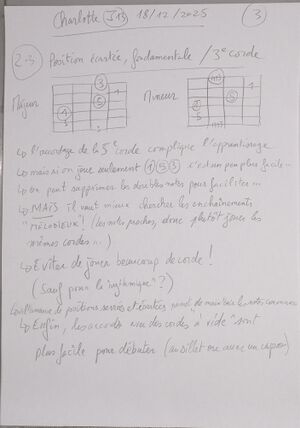 Charlotte J15 18/12/2025 3
2.3 Position écartée, fondamentale / 3e corde
Majeur 3 1 5 1 5
Mineur 1 5
↳ l'accordage de la 5e corde complique l'apprentissage
↳ mais si on joue seulement 1 5 3 c'est un peu plus facile...
↳ on peut supprimer les doubles notes pour faciliter...
↳ MAIS il vaut mieux chercher les enchaînements
"MÉLODIEUX"! (des notes proches, donc plutôt jouer les
mêmes cordes...)
↳ Eviter de jouer beaucoup de corde!
(sauf pour la "rythmique"?)
de positions serrées et écartées permet de les notes communes
↳ Enfin, les accords avec des cordes "à vide" sont
plus facile pour débuter (au sillet ou avec un capo)